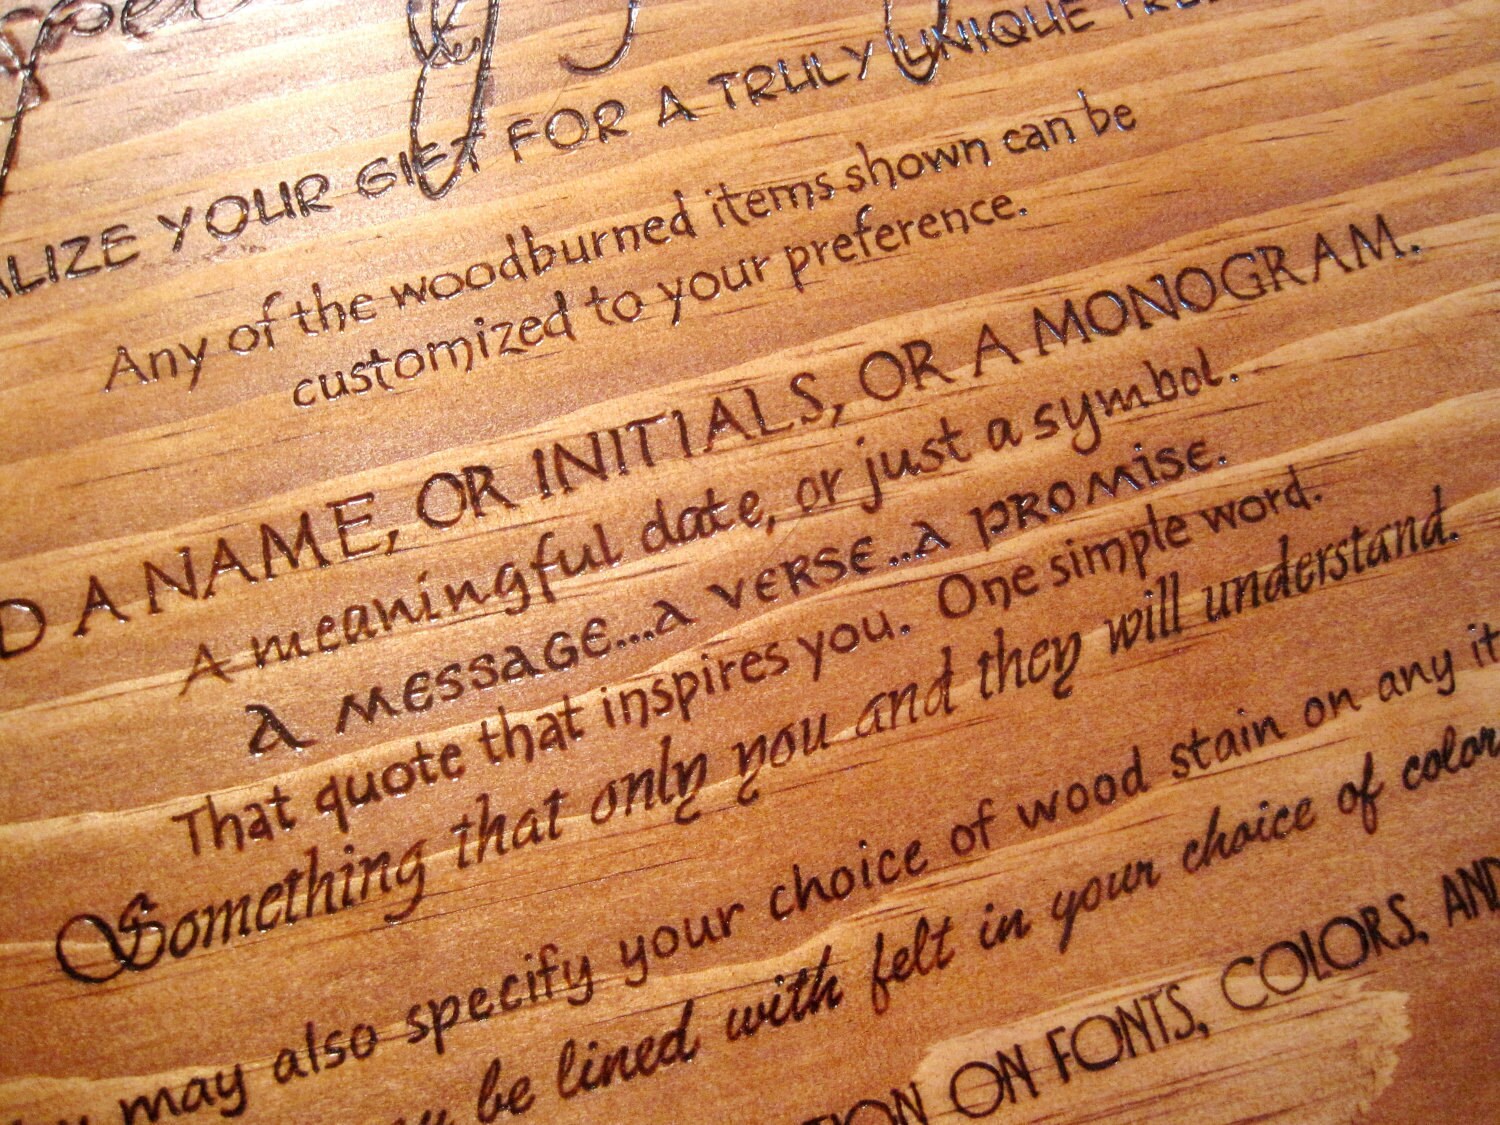 YOUR GIFT FOR A TRULY UNIQUE
Any of the woodburned items shown can be
customized to your preference.
A NAME, OR INITIALS, OR A MONOGRAM.
A meaningful date, or just a symbol.
A MESSAGE...A VERSE...A PROMISE.
That quote that inspires you. One simple word.
Something that only you and they will understand.
may also specify your choice of wood stain on any
be lined with felt in your choice of color
ON FONTS, COLORS, AND